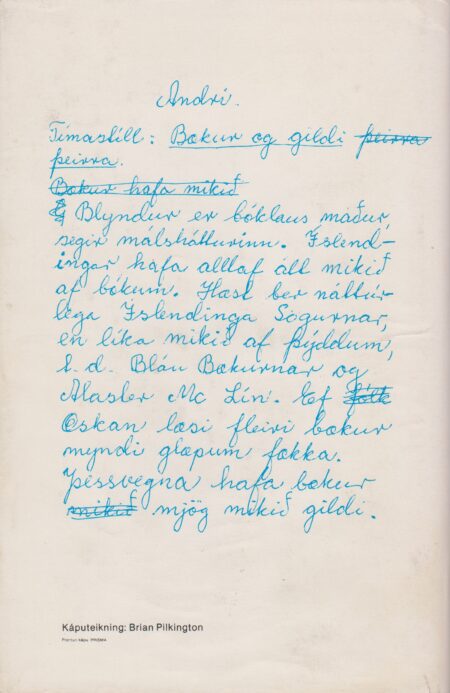 Andri.
Tímastíll: Bækur og gildi þeirra
þeirra.
Bækur hafa mikið
Blyndur er bóklaus maður,
segir málshátturinn. Íslend-
ingar hafa alltaf átt mikið
af bókum. Hæst ber náttúr-
lega Íslendinga Sögurnar,
en líka mikið af þýddum,
t.d. Bláu Bækurnar og
Alasler Mc Lín. Ef fólk
Æskan læsi fleiri bækur
myndi glæpum fækka.
Þessvegna hafa bækur
mikið mjög mikið gildi.
Káputeikning: Brian Pilkington
Prentun kápu: PRISMA